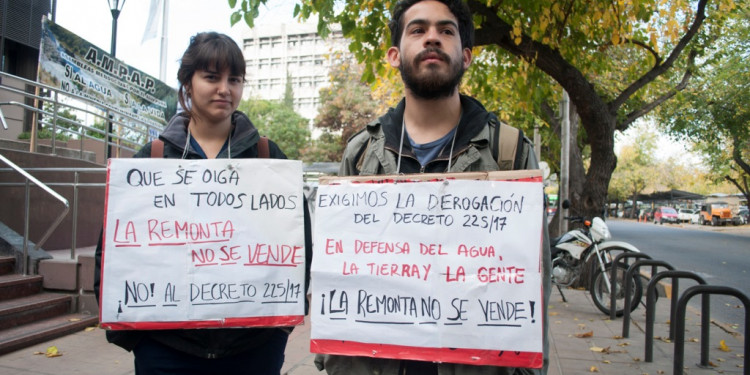 A.M.P.A.P.
SI AL AGUA
QUE SE OIGA
EN TODOS LADOS
LA REMONTA
NO SE VENDE
¡NO! AL DECRETO 225/17
EXIGIMOS LA DEROGACIÓN
DEL DECRETO 225/17
EN DEFENSA DEL AGUA,
LA TIERRA Y LA GENTE
¡LA REMONTA NO SE VENDE!